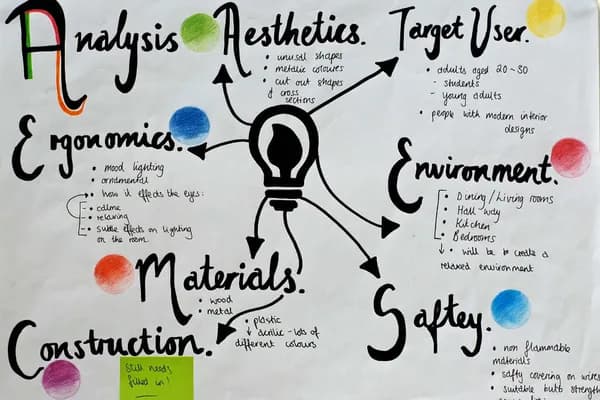 Analysis
Aesthetics.
• unusual shapes
• metalic colours
• cut out shapes
& cross
sections
Target User.
• adults aged 20-30
- students
- young adults
• people with modern interior
designs
Ergonomics.
• mood lighting
• ornamental
• how it effects the eyes:
• calme
• relaxing
• subtle effects on lighting
on the room
Environment.
• Dining/Living rooms
• Hall way
• Kitchen
• Bedrooms
• will be to create a
relaxed environment
Materials.
• wood
• metal
• plastic
acrilic - lots of
different colours
Saftey.
• non flammable
materials
• safty covering on wires
• suitable bulb strength
Construction.
Still needs
filled in!